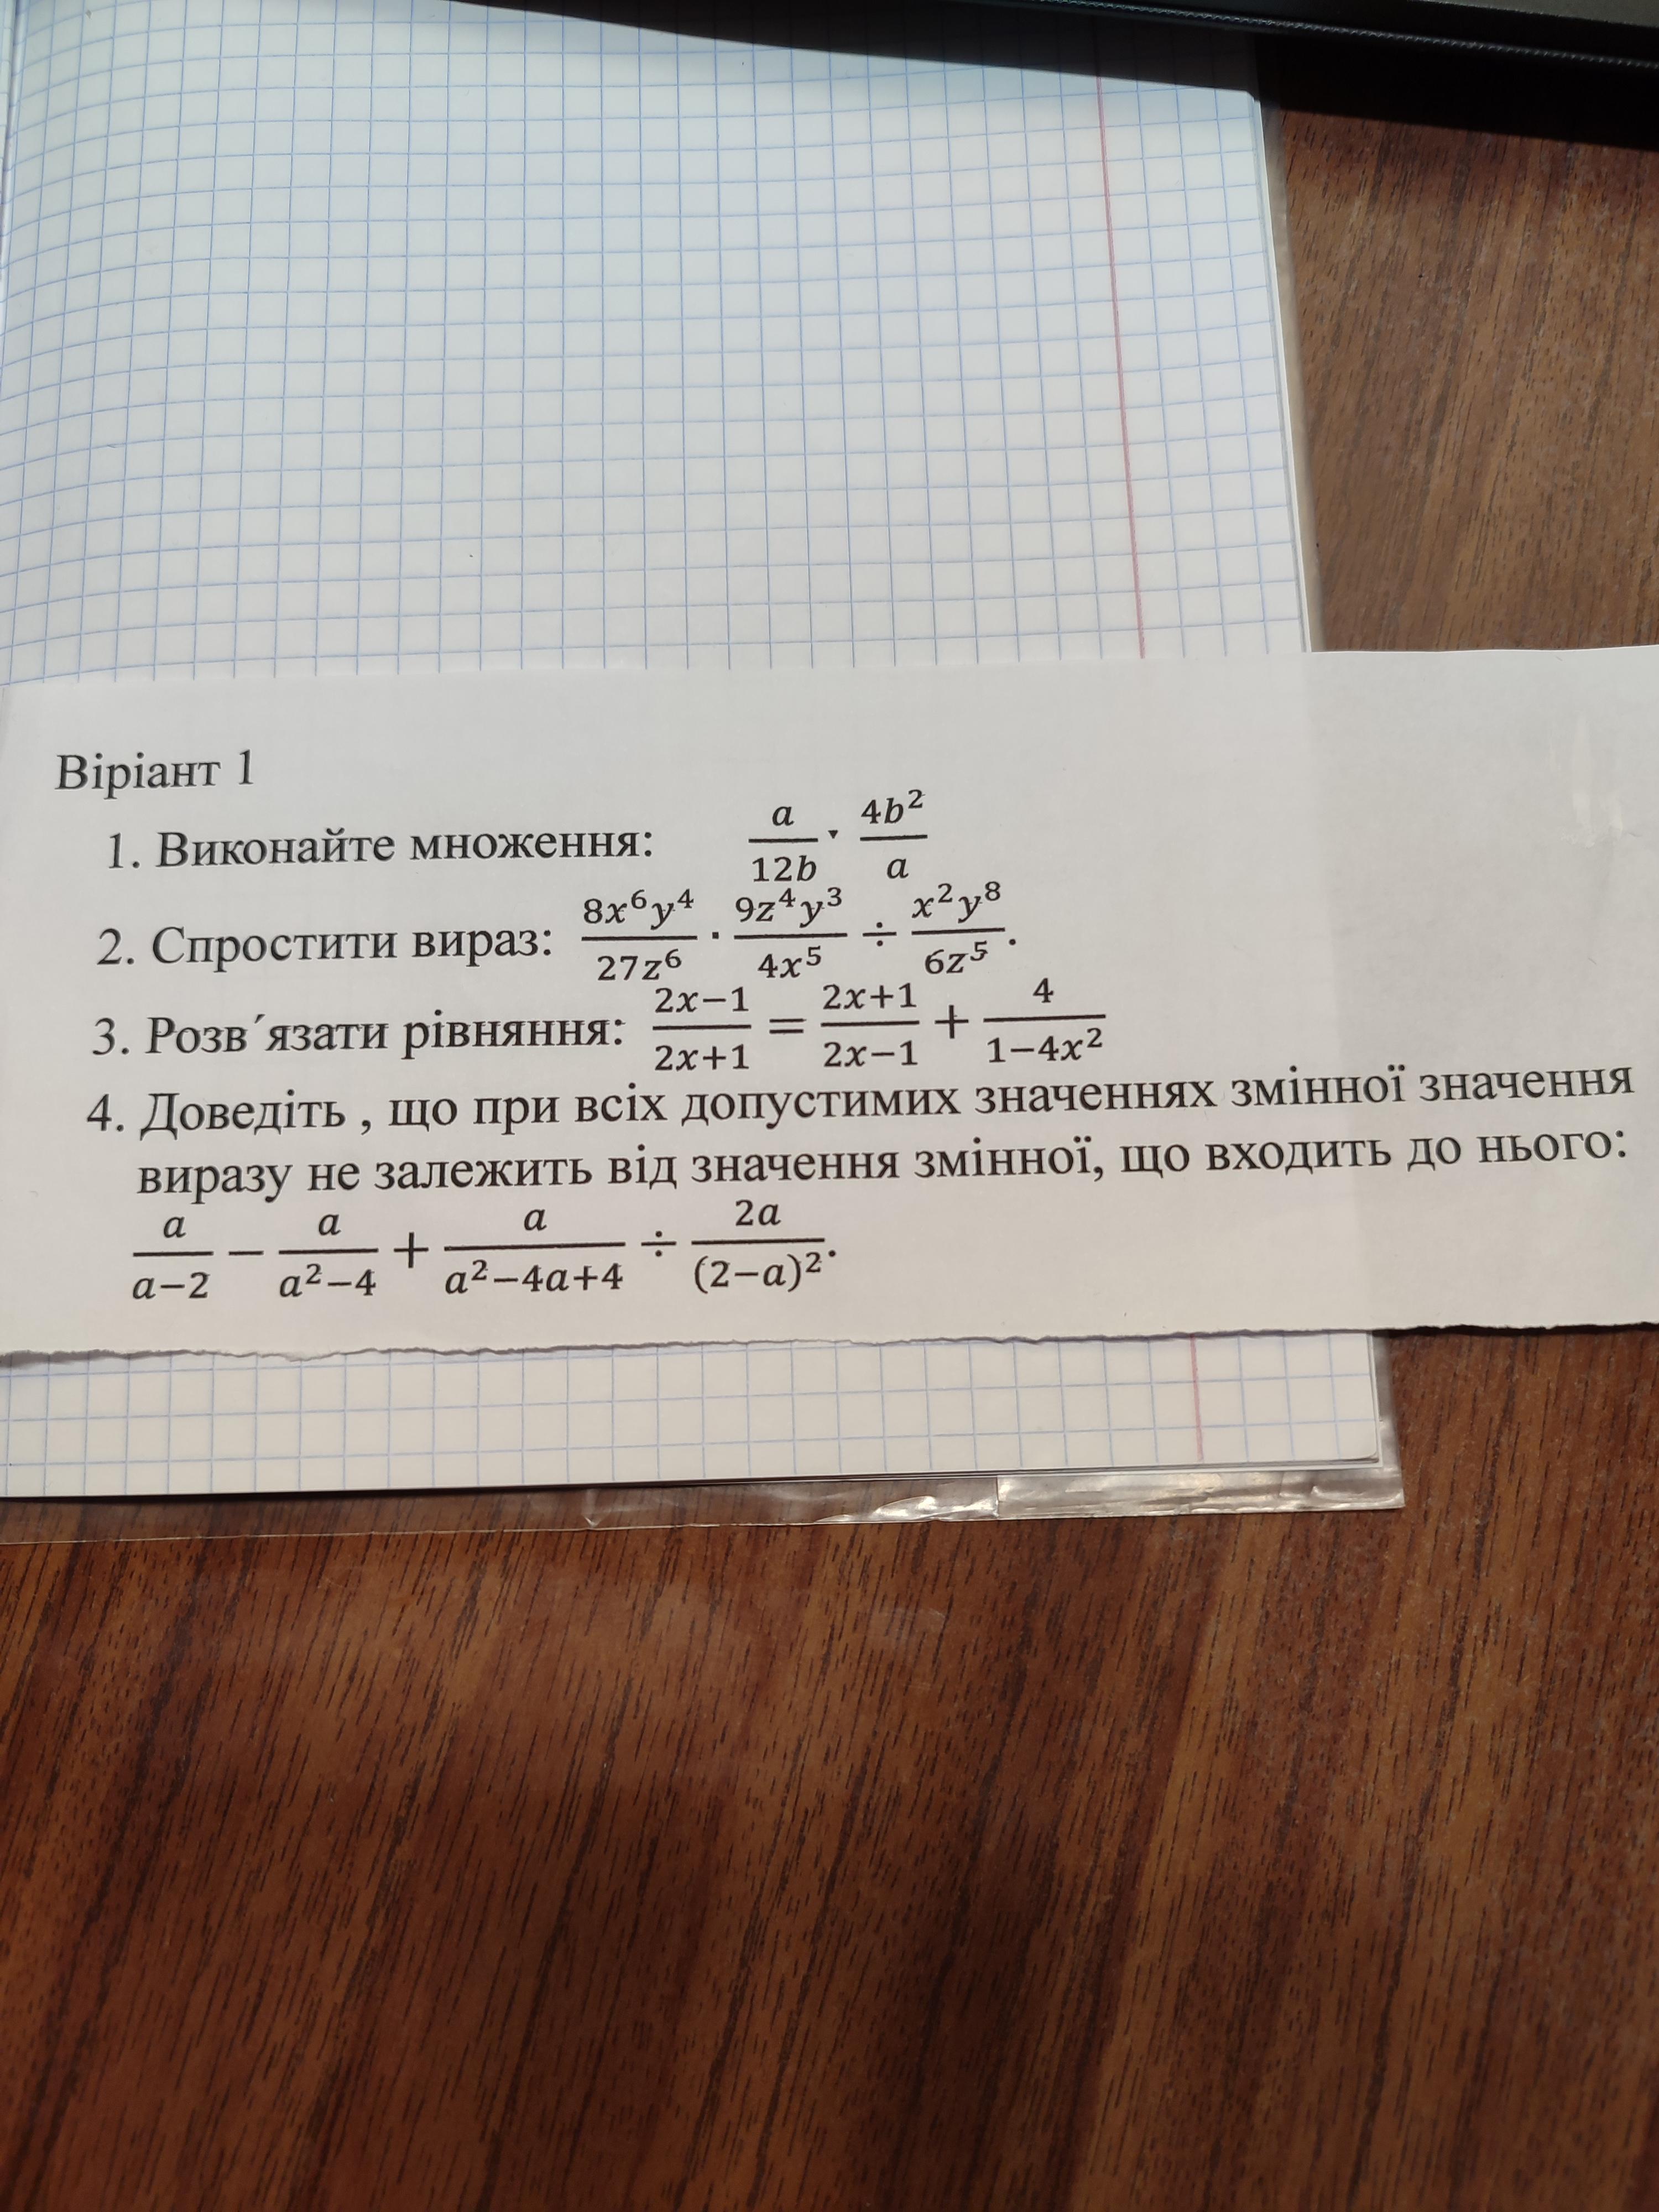 Віріант 1
1. Виконайте множення: a/12b · 4b²/a
2. Спростити вираз: 8x⁶y⁴/27z⁶ · 9z⁴y³/4x⁵ ÷ x²y⁸/6z⁵.
3. Розв´язати рівняння: 2x−1/2x+1 = 2x+1/2x−1 + 4/1−4x²
4. Доведіть , що при всіх допустимих значеннях змінної значення
виразу не залежить від значення змінної, що входить до нього:
a/a−2 − a/a²−4 + a/a²−4a+4 ÷ 2a/(2−a)².